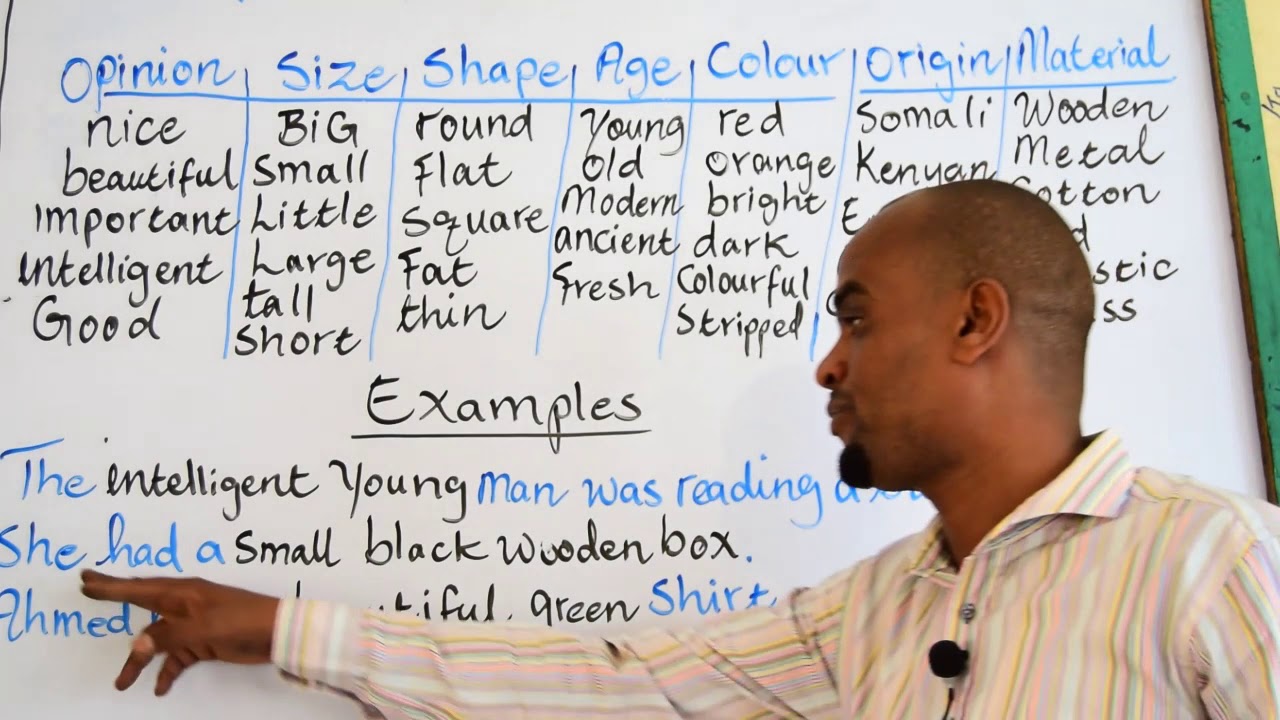 Opinion Size Shape Age Colour Origin Material
nice BiG round Young red Somali Wooden
beautiful Small Flat Old orange Kenyan Metal
Important Little Square Modern bright
Intelligent Large Fat ancient dark
Good tall thin Fresh Colourful
Short Stripped
Examples
The intelligent Young man was reading
She had a Small black Wooden box.
Ahmed green Shirt